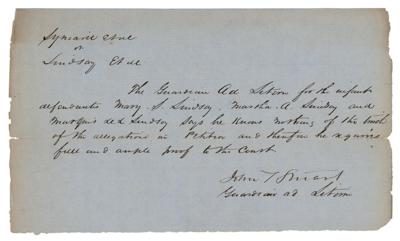 et al
vs
Lindsay et al
The Guardian Ad Litem for the infant
defendants Mary S Lindsay, Martha A Lindsay and
Marquis ded Lindsay says he knows nothing of the truth
of the allegations in Petition and therefore he requires
full and ample proof to the Court
John T Stuart
Guardian ad Litem